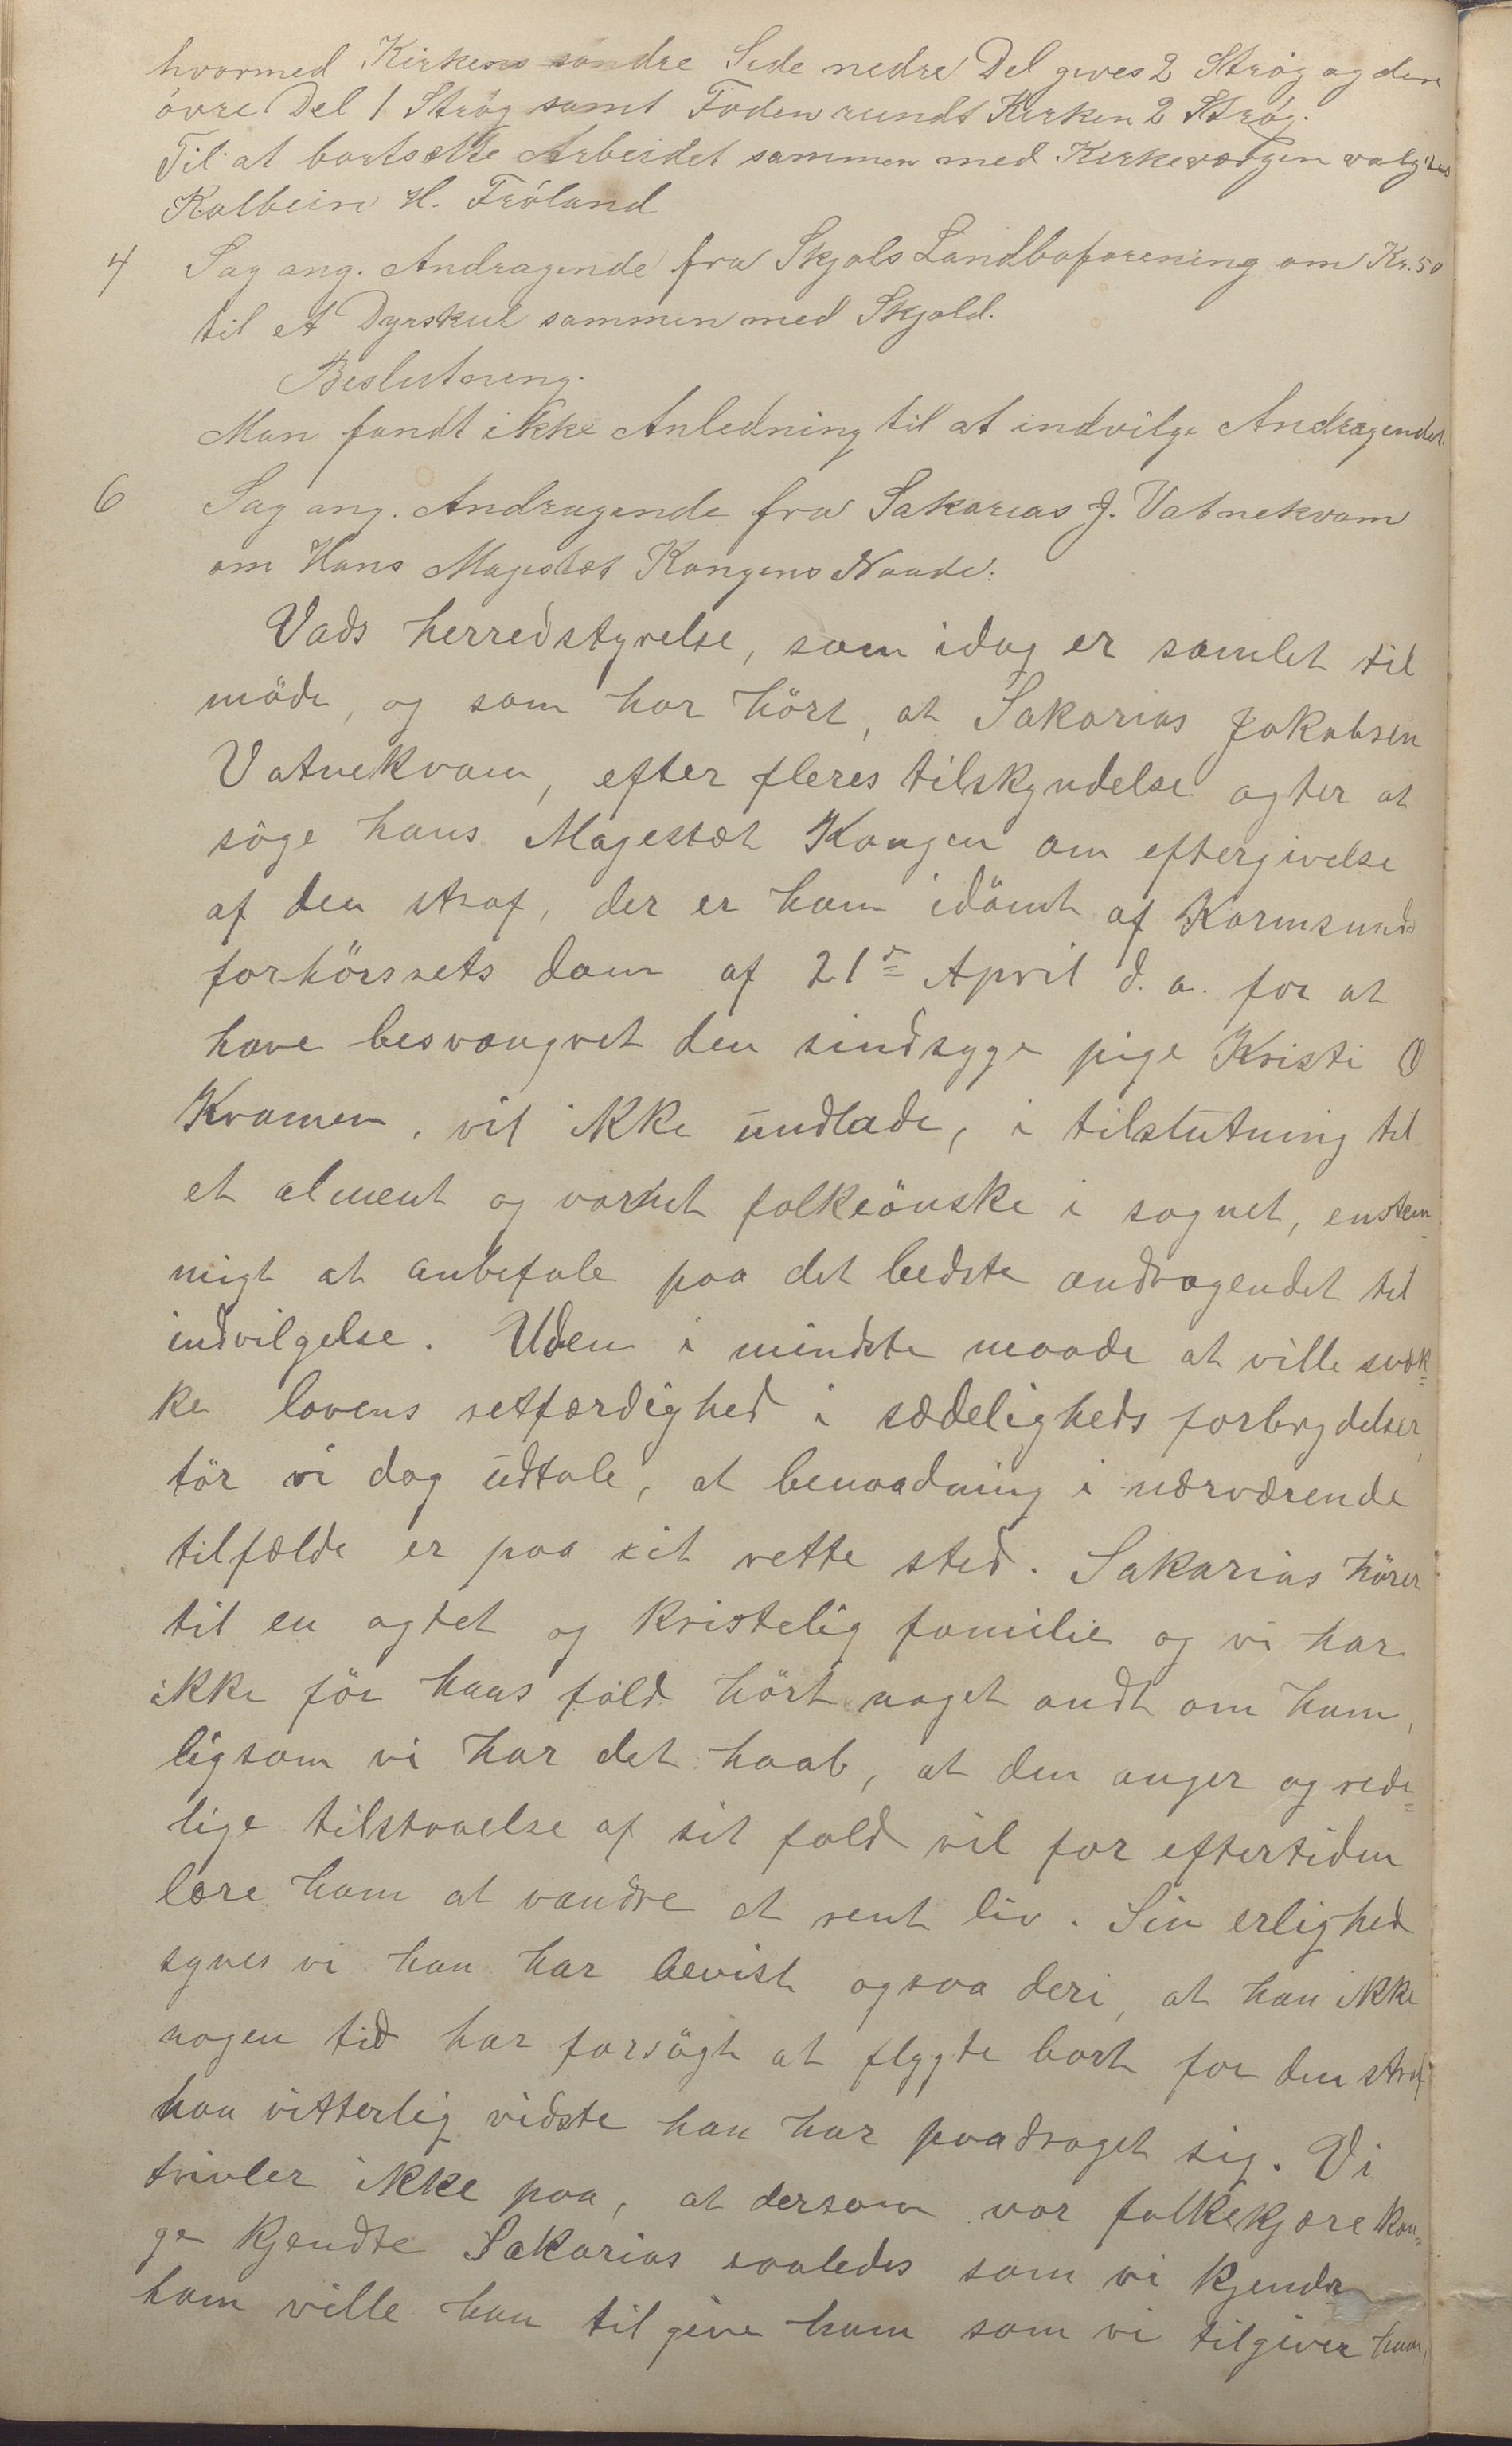 hvormed Kirkens søndre Side nedre Del gives 2 Strøg og den
övre Del 1 Strøg samt Foden rundt Kirken 2 Strøg.
Til at bortsætte Arbeidet sammen med Kirkeværgen valgtes
Kolbein H. Fröland
4 Sag ang. Andragende fra Skjols Landboforening om Kr. 50
til et Dyrskue sammen med Skjold.
Beslutning.
Man fandt ikke Anledning til at indvilge Andragendet.
6 Sag ang. Andragende fra Sakarias J. Vatnekvam
om Hans Majestæt Kongens Naade:
Vads herredstyrelse, som idag er samlet til
möde, og som har hört, at Sakarias Jakobsen
Vatnekvam, efter fleres tilskyndelse agter at
söge hans Magestæt Kongen om eftergivelse
af den straf, der er ham idömt af Karmsunds
forhörsrets dom af 21de April d. a. for at
have besvangret den sindsyge pige Kristi O
Kvamen, vil ikke undlade, i tilslutning til
et alment og varmt folkeönske i sognet, enstem-
migt at anbefale paa det bedste andragendet til
indvilgelse. Uden i mindste maade at ville svæk=
ke lovens retfærdighed i sædeligheds forbrydelser,
tör vi dog udtale, at benaadning i nærværende
tilfælde er paa sit rette sted. Sakarias hörer
til en agtet og kristelig familie og vi har
ikke för hans fald hört noget ondt om ham,
ligsom vi har det haab, at den anger og rede=
lige tilstaaelse af sit fald vil for eftertiden
lære ham at vandre et rent liv. Sin erlighed
synes vi han har bevist ogsaa deri, at han ikke
nogen tid har forsögt at flygte bort for den straf
han vitterlig vidste han har paadraget sig. Vi
tvivler ikke paa, at dersom vor folkekjære kon=
ge kjendte Sakarias saaledes som vi kjender
ham ville han tilgive ham som vi tilgiver ham,